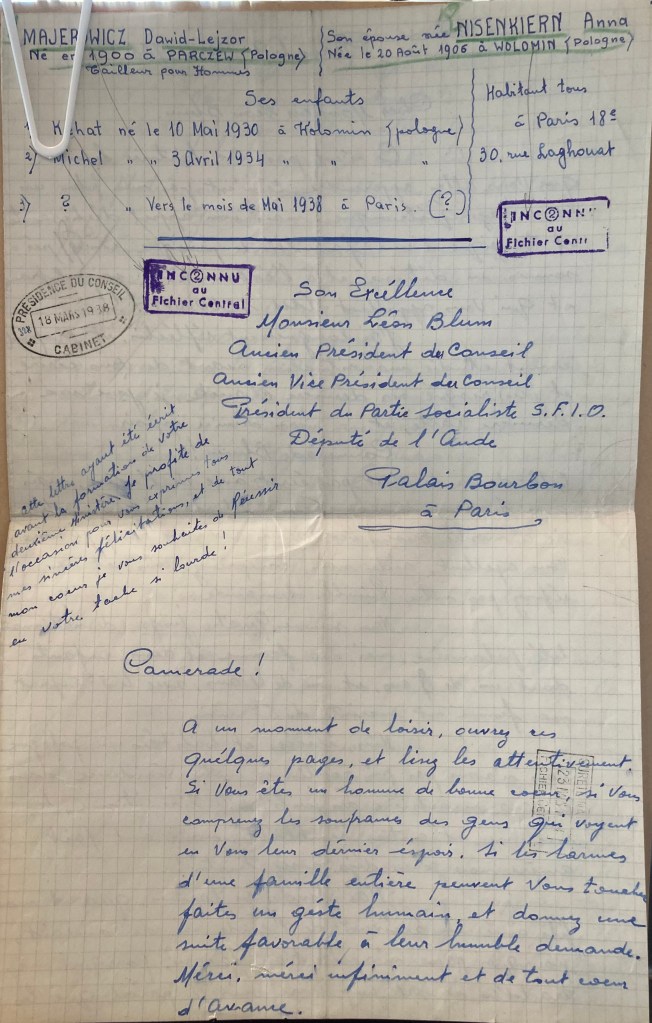 MAJEROWICZ Dawid-Lejzor
Né en 1900 à PARCZEW (Pologne)
Tailleur pour Hommes
Son épouse née NISENKIERN Anna
Née le 20 Août 1906 à WOLOMIN (Pologne)
Ses enfants
né le 10 Mai 1930 à Wolomin (pologne)
2) Michel " " 3 Avril 1934 " " "
3) ? " Vers le mois de Mai 1938 à Paris. (?)
Habitant tous
à Paris 18e
30, rue Laghouat
INCONNU
au
Fichier Central
2
INCONNU
au
Fichier Central
2
PRÉSIDENCE DU CONSEIL
18 MARS 1938
CABINET
Son Excéllence
Monsieur Léon Blum
Ancien Président du Conseil
Ancien Vice Président du Conseil
Président du Partie Socialiste S.F.I.O.
Député de l'Aude
Palais Bourbon
à Paris
Cette lettre ayant été écrit
avant la formation de votre
deuxième ministère, je profite de
l'occasion pour vous exprimer tous
mes sincères félicitations, et de tout
mon coeur je vous souhaites de Réussir
en votre tache si lourde !
Camerade !
A un moment de loisir, ouvrez ces
quélques pages, et lisez les attentivement.
Si Vous êtes un homme de bonne coeur, si vous
comprenez les soufrances des gens qui voyent
en Vous leur dérnier éspoir. Si les larmes
d'une famille entière peuvent Vous toucher
faites un géste humain, et donnez une
suite favorable à leur humble demande.
Mérci, mérci infiniment et de tout coeur
d'avance.